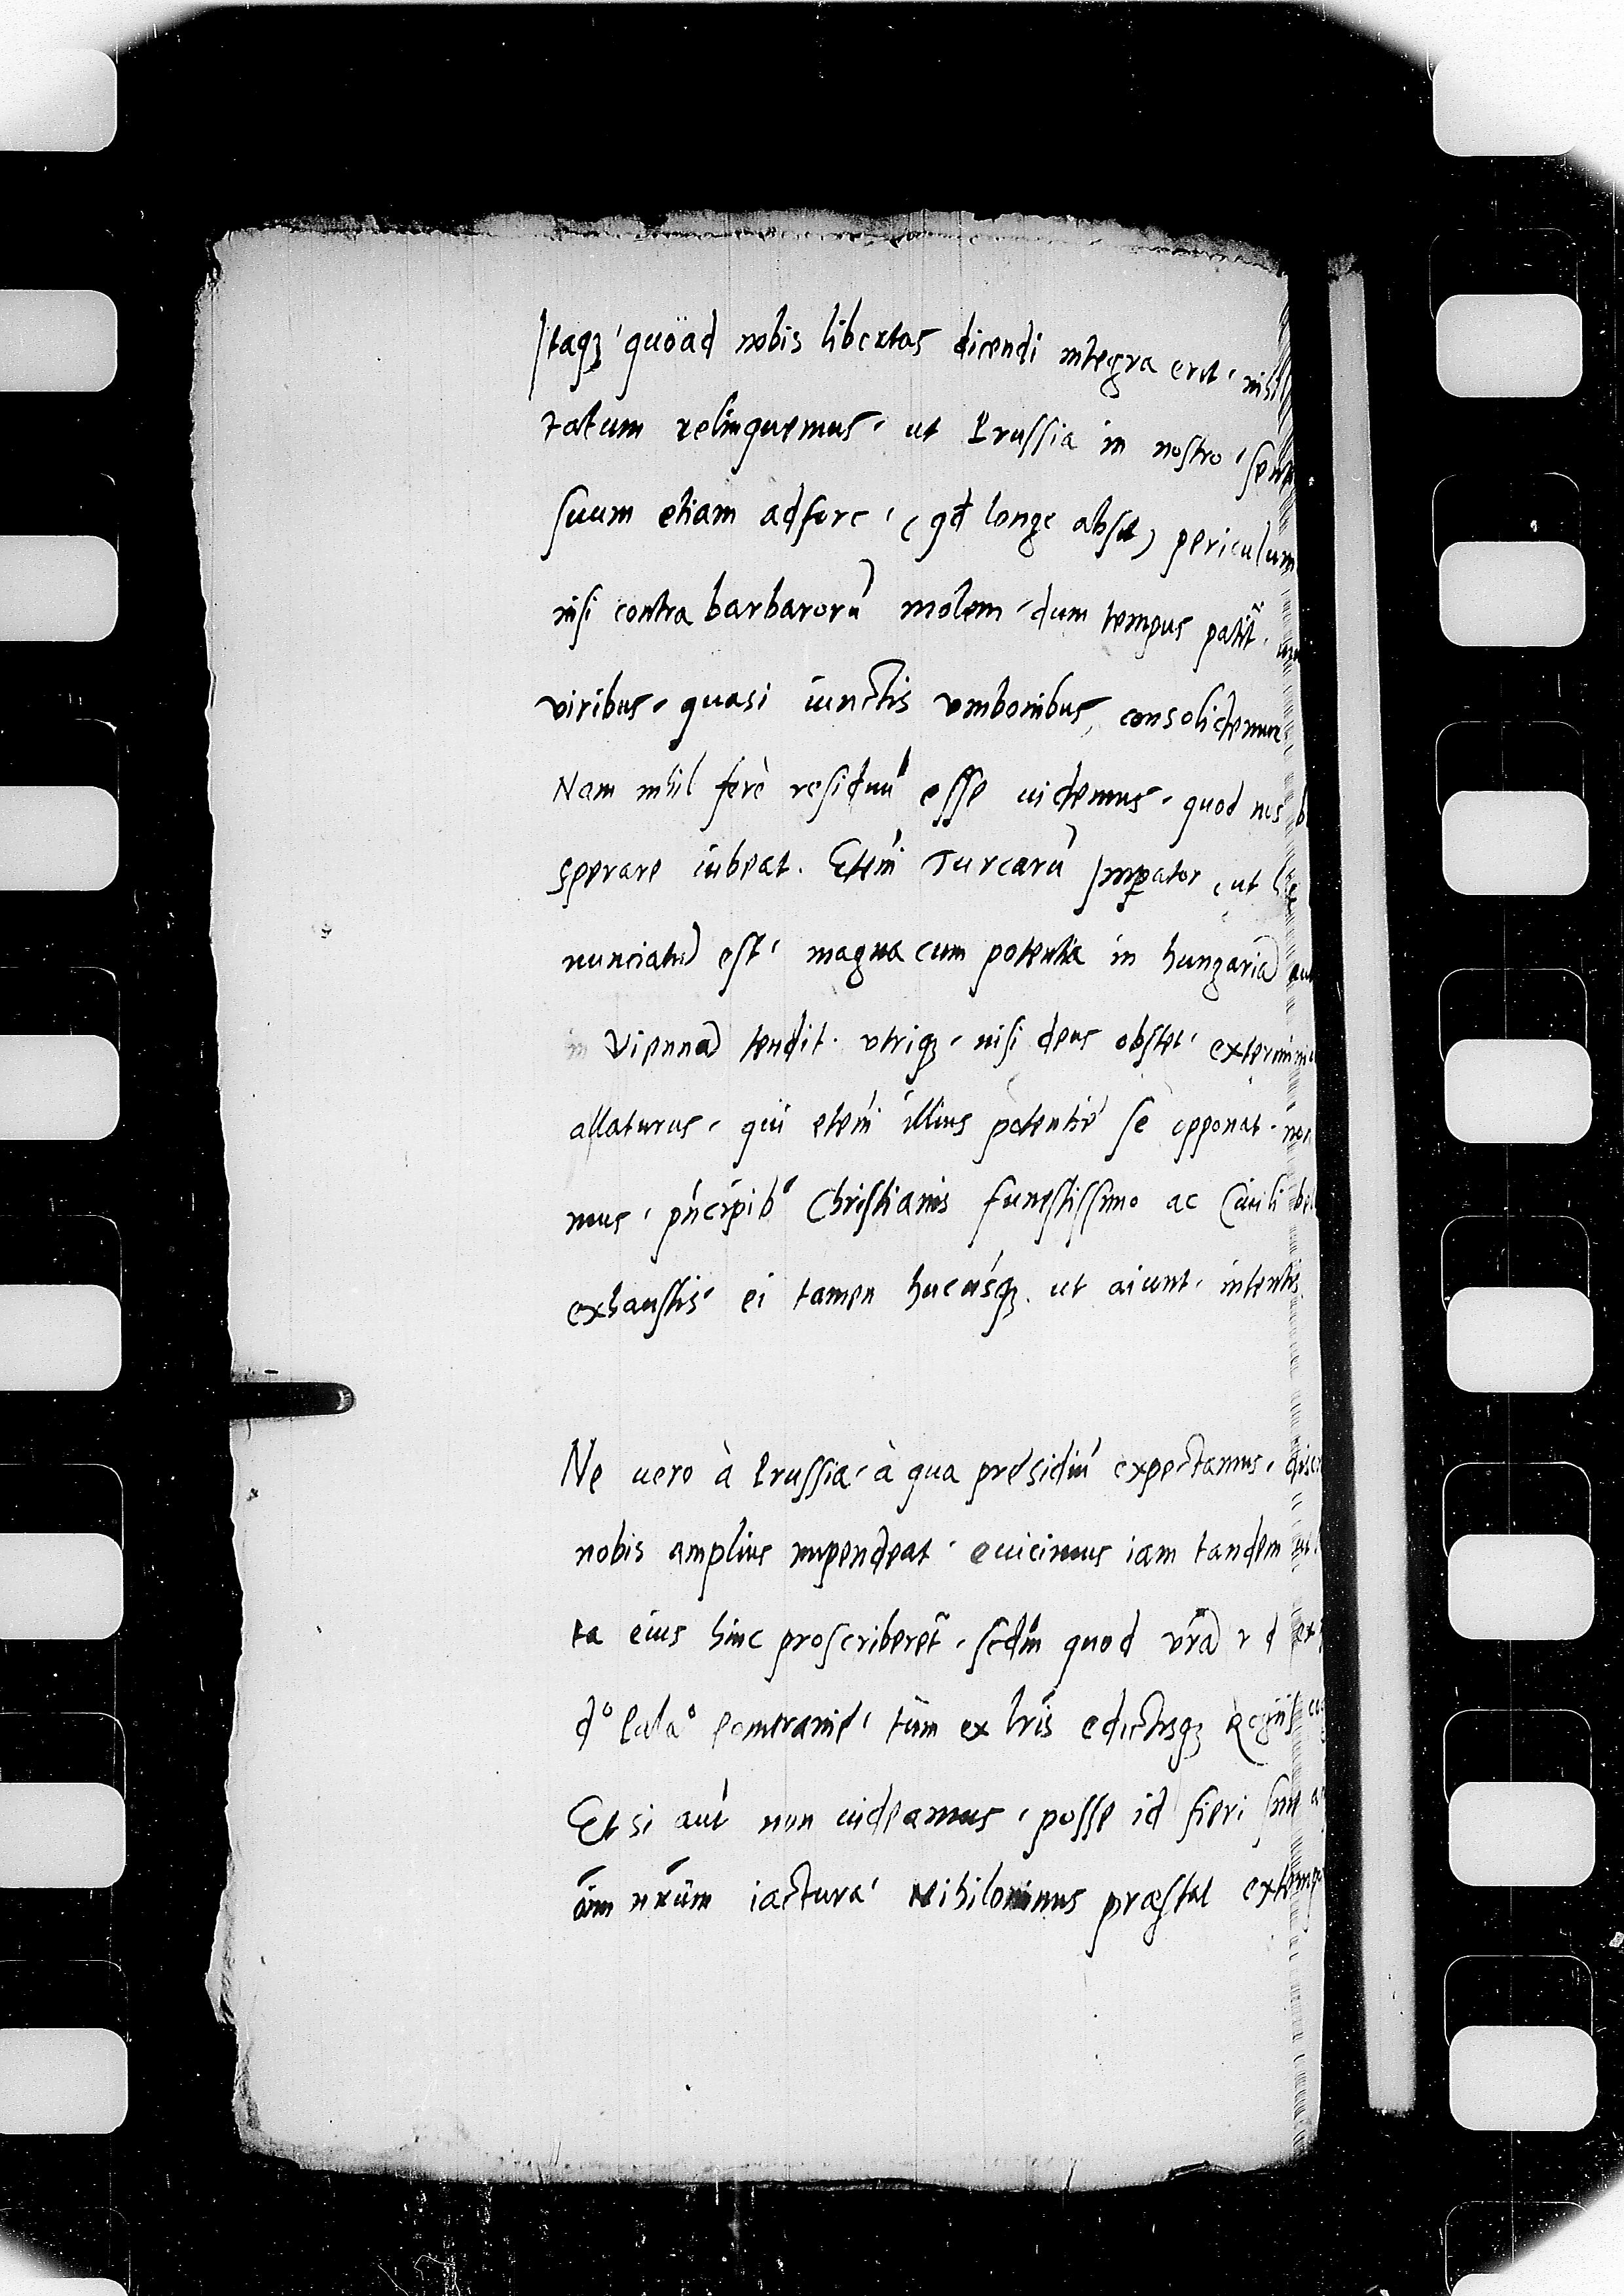 Itaqꝫ quöad nobis libertas dicendi integra erit, nihil
tatum relinquemus, ut Prussia in nostro, sent
suum etiam adfore, (qđ longe absit) periculum
nisi contra barbarorū molem, dum tempus patit̃.
viribus, quasi iunctis vmbonibus, consolidemur
Nam nihil ferè residuū esse uidemus, quod nos b
sperare iubeat. Eteī Turcarū Imꝑator, ut
nunciatū est, magna cum potentia in hungariā
in Viennā tendit. vtriqꝫ, nisi deus obstet, extermini
allaturus, qui etenī illius potentie se opponat, non
mus, pncipib⁹ Christianis funestissimo ac Ciuili bel
exhaustis, ei tamen hucúsqꝫ, ut aiunt, intentis
Ne uero à Prussia, à qua presidiū expectamus, disc
nobis amplius impendeat, euicimus iam tandem ut
ta eius hinc proscriberet̃, sedm quod vrā r d ex
d° Pala° Pomeranie, tum ex lris edictisqꝫ Regijs
Et si aut non uideamus, posse id fieri sine a
nrūm iacturā, Nihilominus præstat extemp